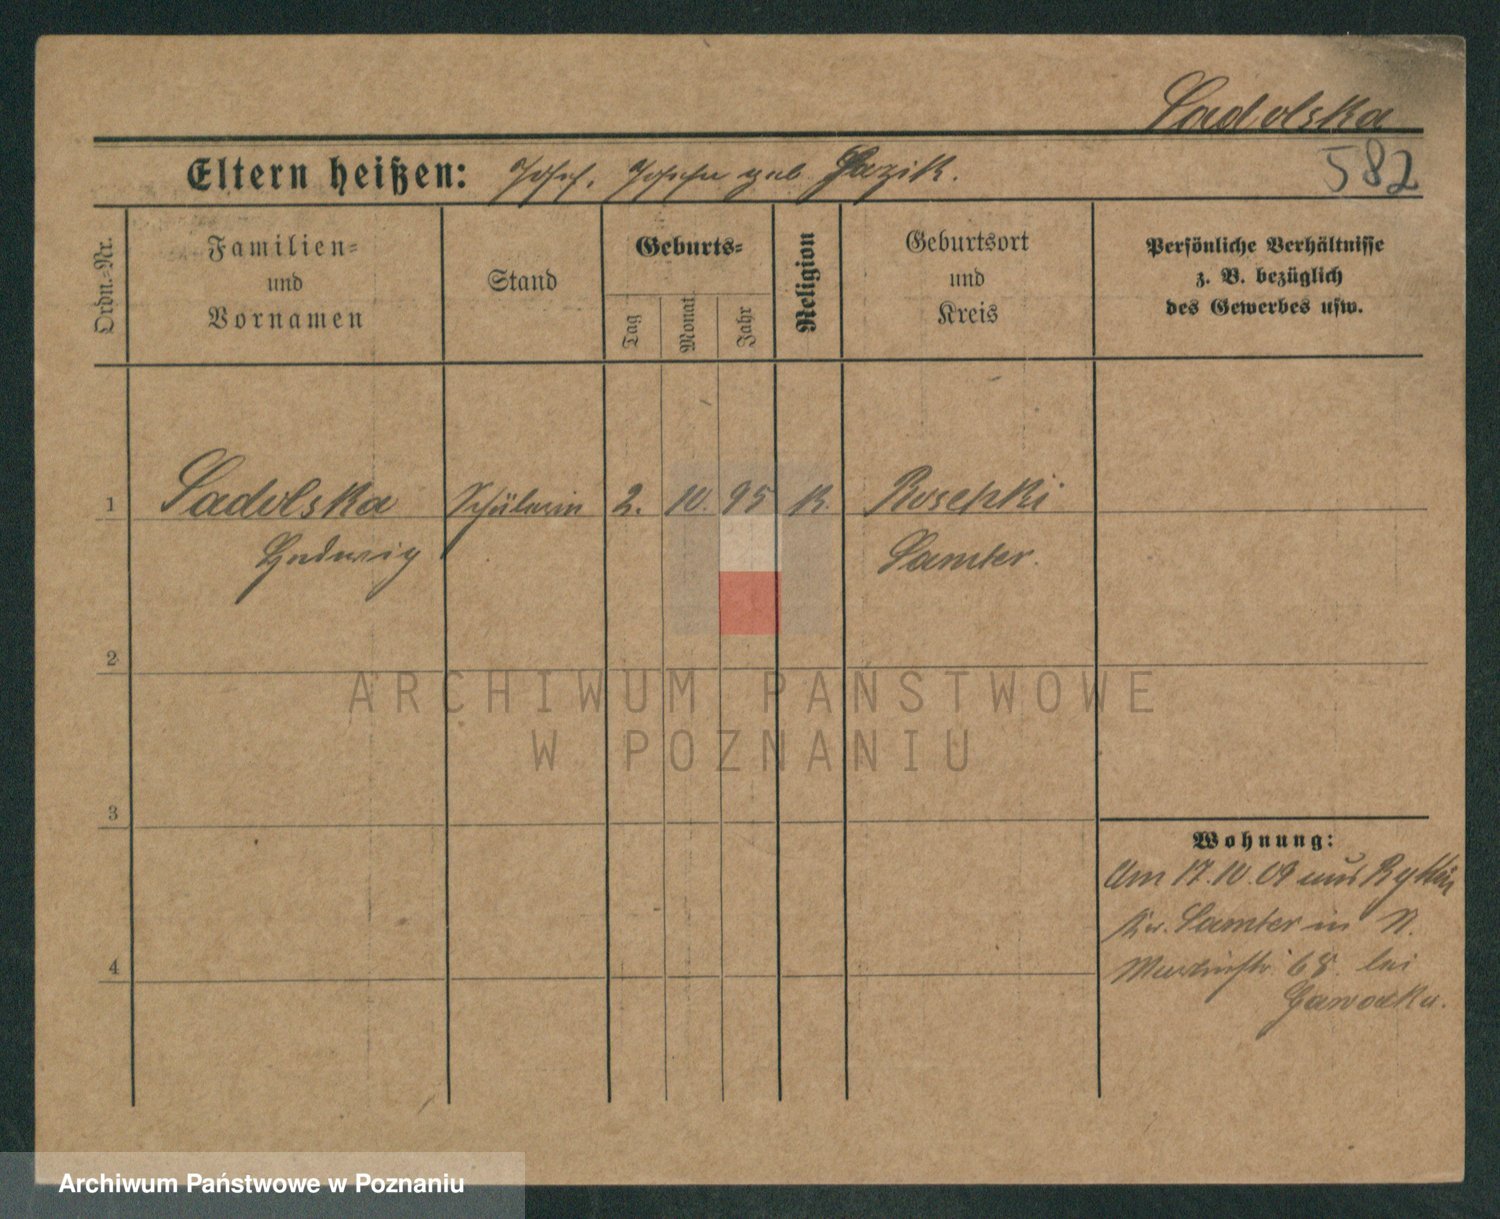 Sadolska
Eltern heißen: Josef, Josefa geb. Gazik.
582
Ordn.-Nr.
Familien-
und
Vornamen
Stand
Geburts-
Tag
Monat
Jahr
Religion
Geburtsort
und
Kreis
Persönliche Verhältnisse
z. B. bezüglich
des Gewerbes usw.
1 Sadolska Schülerin 2. 10. 95 K. Rosepki
Hedwig Samter.
2
3
4
Wohnung:
Am 17.10.09 aus
Kr. Samter in
Martinstr. 68 bei
ARCHIWUM PAŃSTWOWE
W POZNANIU
Archiwum Państwowe w Poznaniu